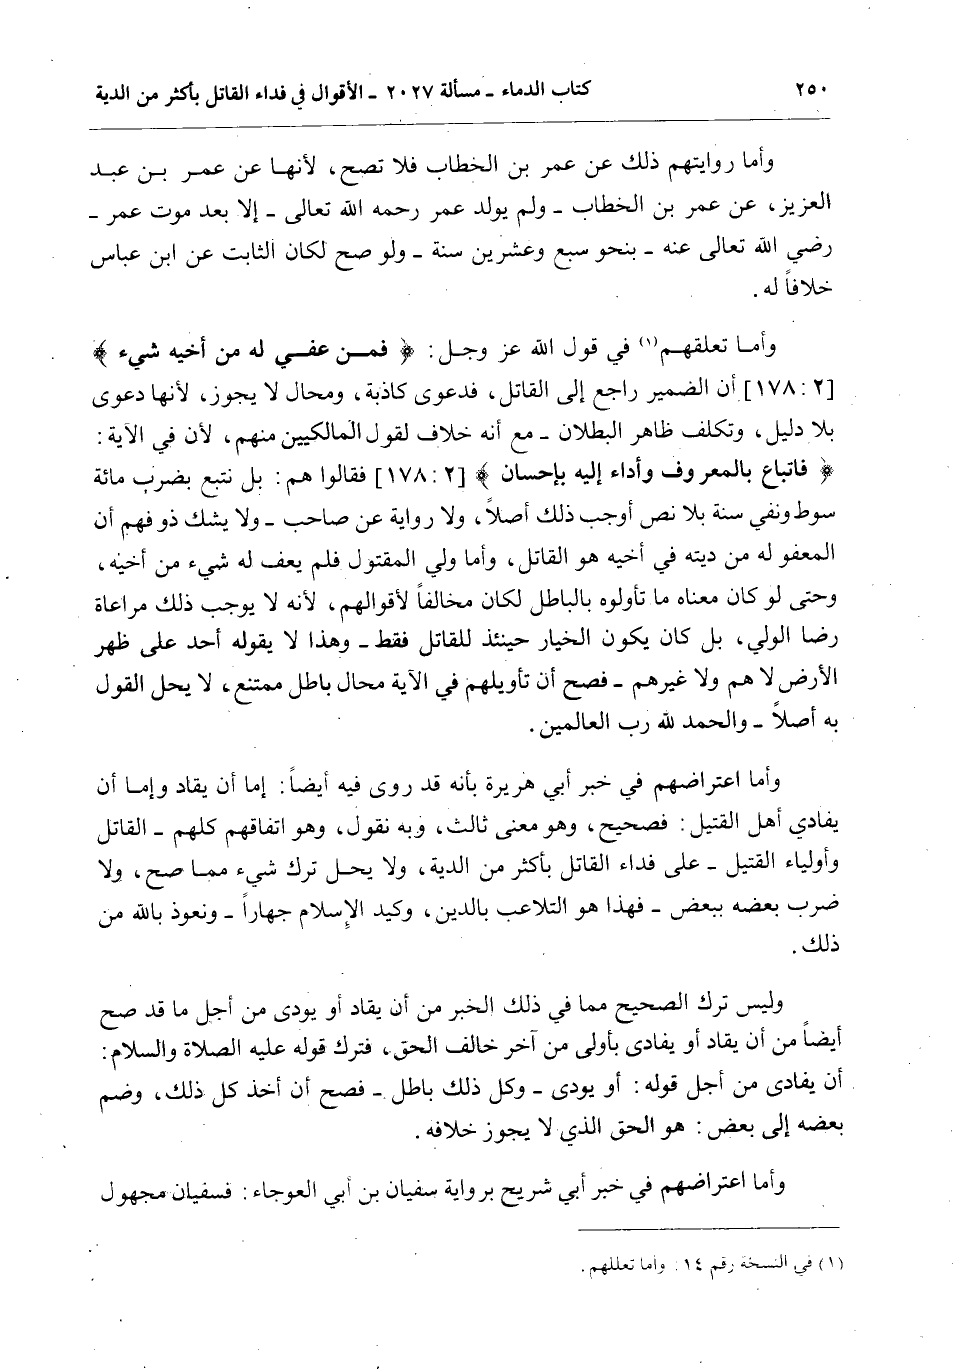 ٢٥٠ كتاب الدماء ـ مسألة ٢٠٢٧ ـ الأقوال في فداء القاتل بأكثر من الدية
وأما روايتهم ذلك عن عمر بن الخطاب فلا تصح، لأنهـا عن عمـر بـن عبـد
العزيز، عن عمر بن الخطاب ـ ولم يولد عمر رحمه الله تعالى ـ إلا بعد موت عمر ـ
رضي الله تعالى عنه ـ بنحو سبع وعشرين سنة ـ ولو صح لكان الثابت عن ابن عباس
خلافاً له.
وأمـا تعلقهـم(١) في قول الله عز وجـل: ﴿ فمـن عفـي له من أخيه شيء ﴾
[٢: ١٧٨] أن الضمير راجع إلى القاتل، فدعوى كاذبة، ومحال لا يجوز، لأنها دعوى
بلا دليل، وتكلف ظاهر البطلان ـ مع أنه خلاف لقول المالكيين منهم، لأن في الآية:
﴿ فاتباع بالمعروف وأداء إليه بإحسان ﴾ [٢: ١٧٨] فقالوا هم: بل نتبع بضرب مائة
سوط ونفي سنة بلا نص أوجب ذلك أصلاً، ولا رواية عن صاحب ـ ولا يشك ذو فهم أن
المعفو له من ديته في أخيه هو القاتل، وأما ولي المقتول فلم يعف له شيء من أخيه،
وحتى لو كان معناه ما تأولوه بالباطل لكان مخالفاً لأقوالهم، لأنه لا يوجب ذلك مراعاة
رضا الولي، بل كان يكون الخيار حينئذ للقاتل فقط ـ وهذا لا يقوله أحد على ظهر
الأرض لا هم ولا غيرهم ـ فصح أن تأويلهم في الآية محال باطل ممتنع، لا يحل القول
به أصلاً ـ والحمد لله رب العالمين.
وأما اعتراضهم في خبر أبي هريرة بأنه قد روى فيه أيضاً: إما أن يقاد وإمـا أن
يفادي أهل القتيل: فصحيح، وهو معنى ثالث، وبه نقول، وهو اتفاقهم كلهم ـ القاتل
وأولياء القتيل ـ على فداء القاتل بأكثر من الدية، ولا يحـل ترك شيء ممـا صح، ولا
ضرب بعضه ببعض ـ فهذا هو التلاعب بالدين، وكيد الإسلام جهاراً ـ ونعوذ بالله من
ذلك.
وليس ترك الصحيح مما في ذلك الخبر من أن يقاد أو يودى من أجل ما قد صح
أيضاً من أن يقاد أو يفادى بأولى من آخر خالف الحق، فترك قوله عليه الصلاة والسلام:
أن يفادى من أجل قوله: أو يودى ـ وكل ذلك باطل ـ فصح أن أخذ كل ذلك، وضم
بعضه إلى بعض: هو الحق الذي لا يجوز خلافه.
وأما اعتراضهم في خبر أبي شريح برواية سفيان بن أبي العوجاء: فسفيان مجهول
(١) في النسخة رقم ١٤: وأما تعللهم.